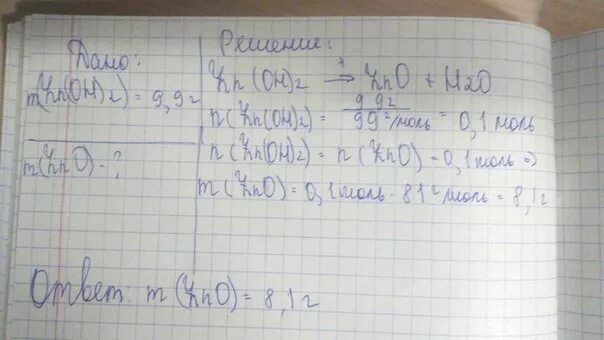 Дано:
m(Zn(OH)2) = 9,9г
m(ZnO) - ?
Решение:
Zn(OH)2 t→ ZnO + H2O
n(Zn(OH)2) = 9,9г / 99г/моль = 0,1 моль
n(Zn(OH)2) = n(ZnO) = 0,1 моль =>
m(ZnO) = 0,1 моль · 81 г/моль = 8,1г
Ответ: m(ZnO) = 8,1г